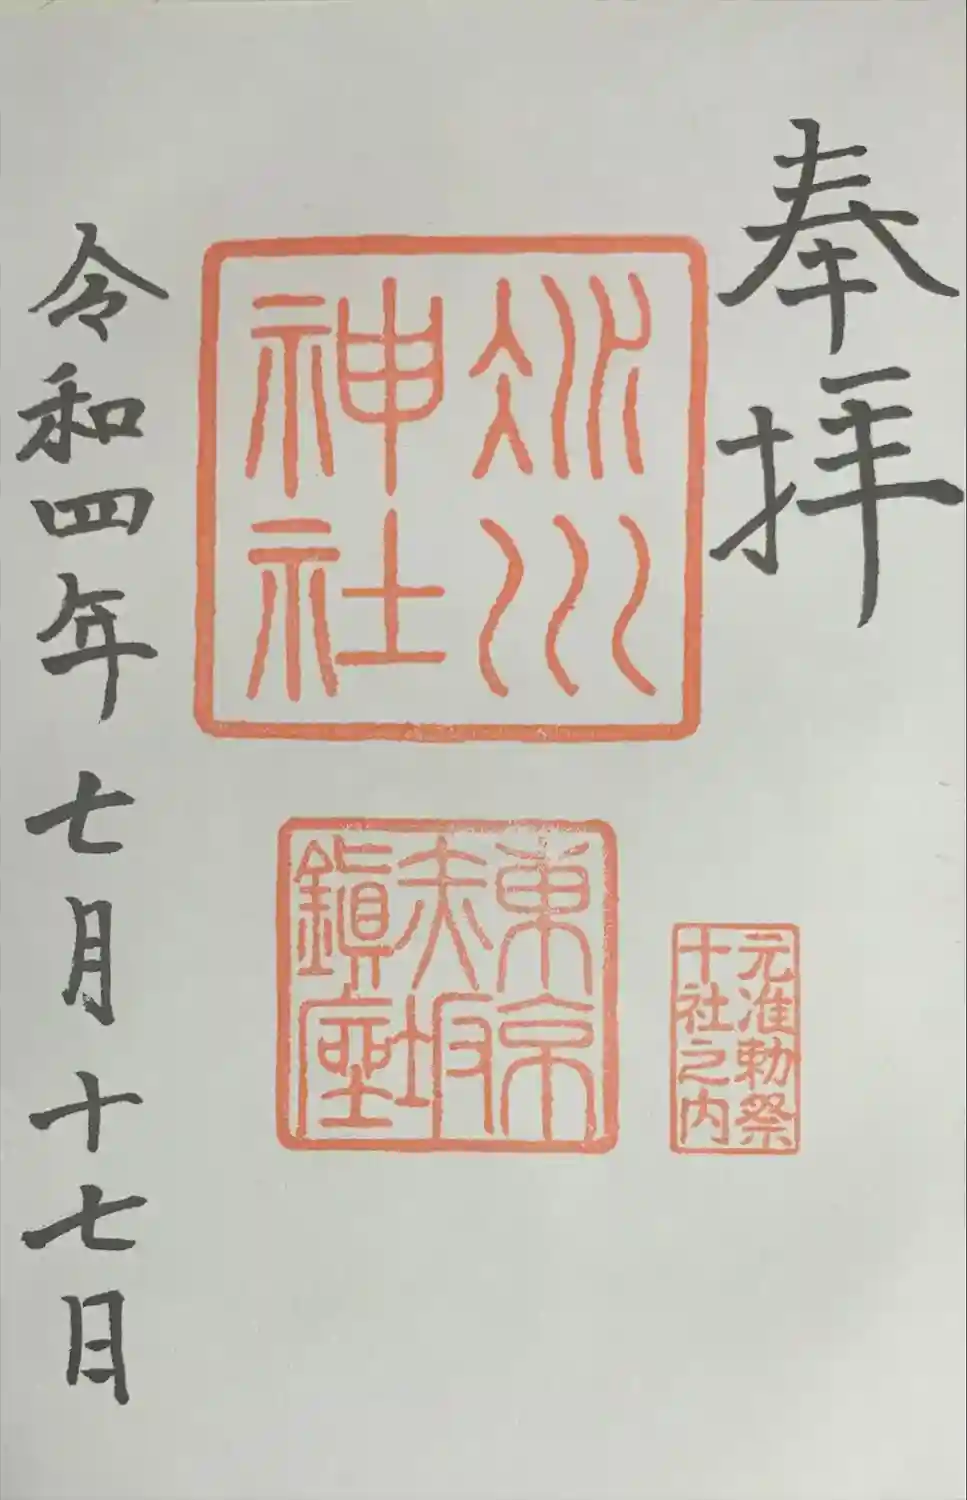 奉拝
氷川
神社
東京
赤坂
鎮座
元准勅祭
十社之内
令和四年七月十七日